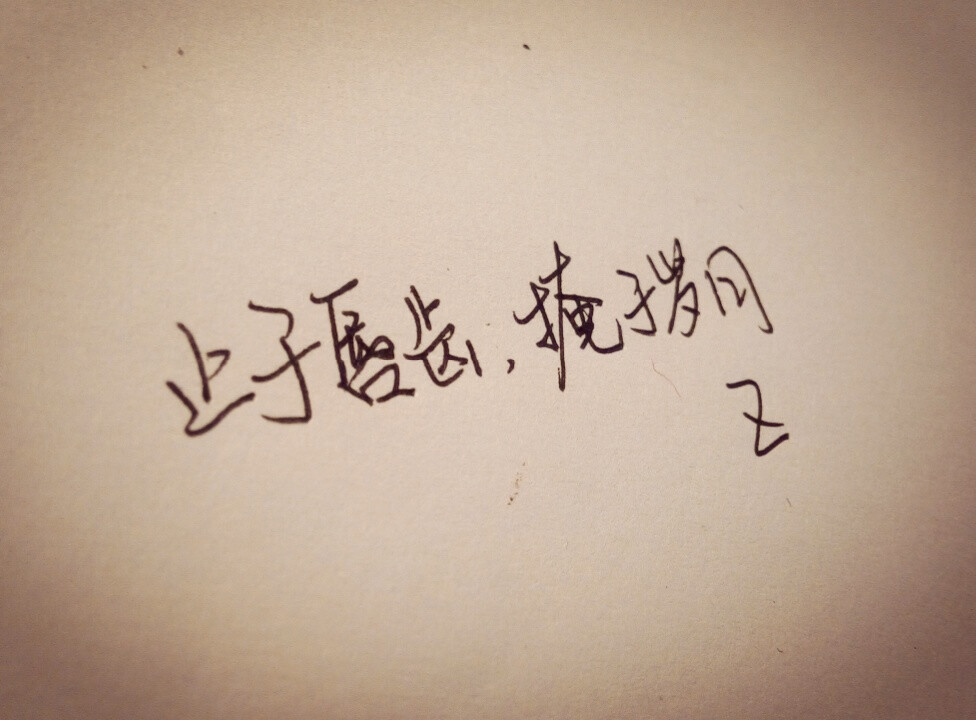 止于唇齿,掩于岁月
Z